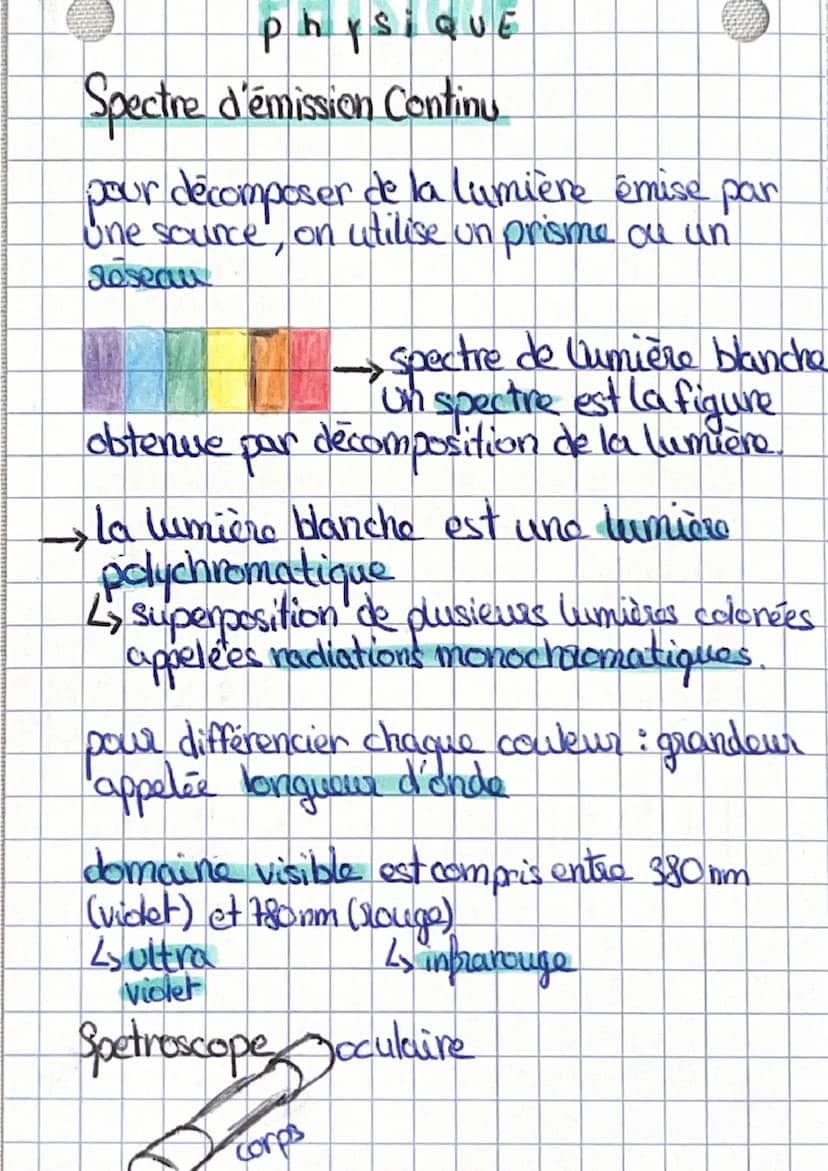 PHYSIQUE
physiQUE
Spectre d'émission Continu
pour décomposer de la lumière émise par
une source, on utilise un prisme ou un
réseau
→ spectre de lumière blanche
un spectre est la figure
obtenue par décomposition de la lumière.
→ la lumière blanche est une lumière
polychromatique
↳ superposition de plusieurs lumières colorées
appelées radiations monochromatiques.
pour différencier chaque couleur : grandeur
appelée longueur d'onde
domaine visible est compris entre 380 nm
(violet) et 780 nm (rouge)
↳ ultra ↳ infrarouge
violet
Spetroscope oculaire
corps